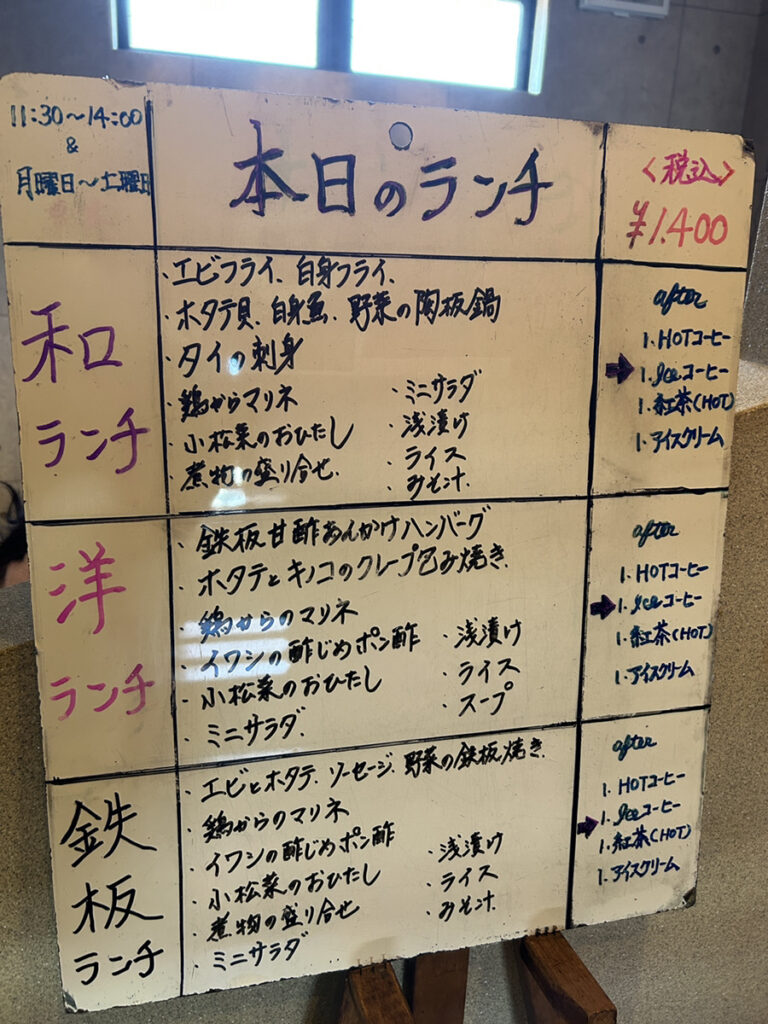 11:30～14:00
&
月曜日～土曜日
本日のランチ
<税込>
¥1.400
和
ランチ
・エビフライ、白身フライ、
・ホタテ貝、白身魚、野菜の陶板鍋
・タイの刺身
・鶏からマリネ
・小松菜のおひたし
・煮物の盛り合せ
・ミニサラダ
・浅漬け
・ライス
・みそ汁
after
1. HOTコーヒー
1. Iceコーヒー
1. 紅茶(HOT)
1. アイスクリーム
洋
ランチ
・鉄板甘酢あんかけハンバーグ
・ホタテとキノコのクレープ包み焼き
・鶏からのマリネ
・イワシの酢じめポン酢
・小松菜のおひたし
・ミニサラダ
・浅漬け
・ライス
・スープ
after
1. HOTコーヒー
1. Iceコーヒー
1. 紅茶(HOT)
1. アイスクリーム
鉄
板
ランチ
・エビとホタテ、ソーセージ、野菜の鉄板焼き
・鶏からのマリネ
・イワシの酢じめポン酢
・小松菜のおひたし
・煮物の盛り合せ
・ミニサラダ
・浅漬け
・ライス
・みそ汁
after
1. HOTコーヒー
1. Iceコーヒー
1. 紅茶(HOT)
1. アイスクリーム